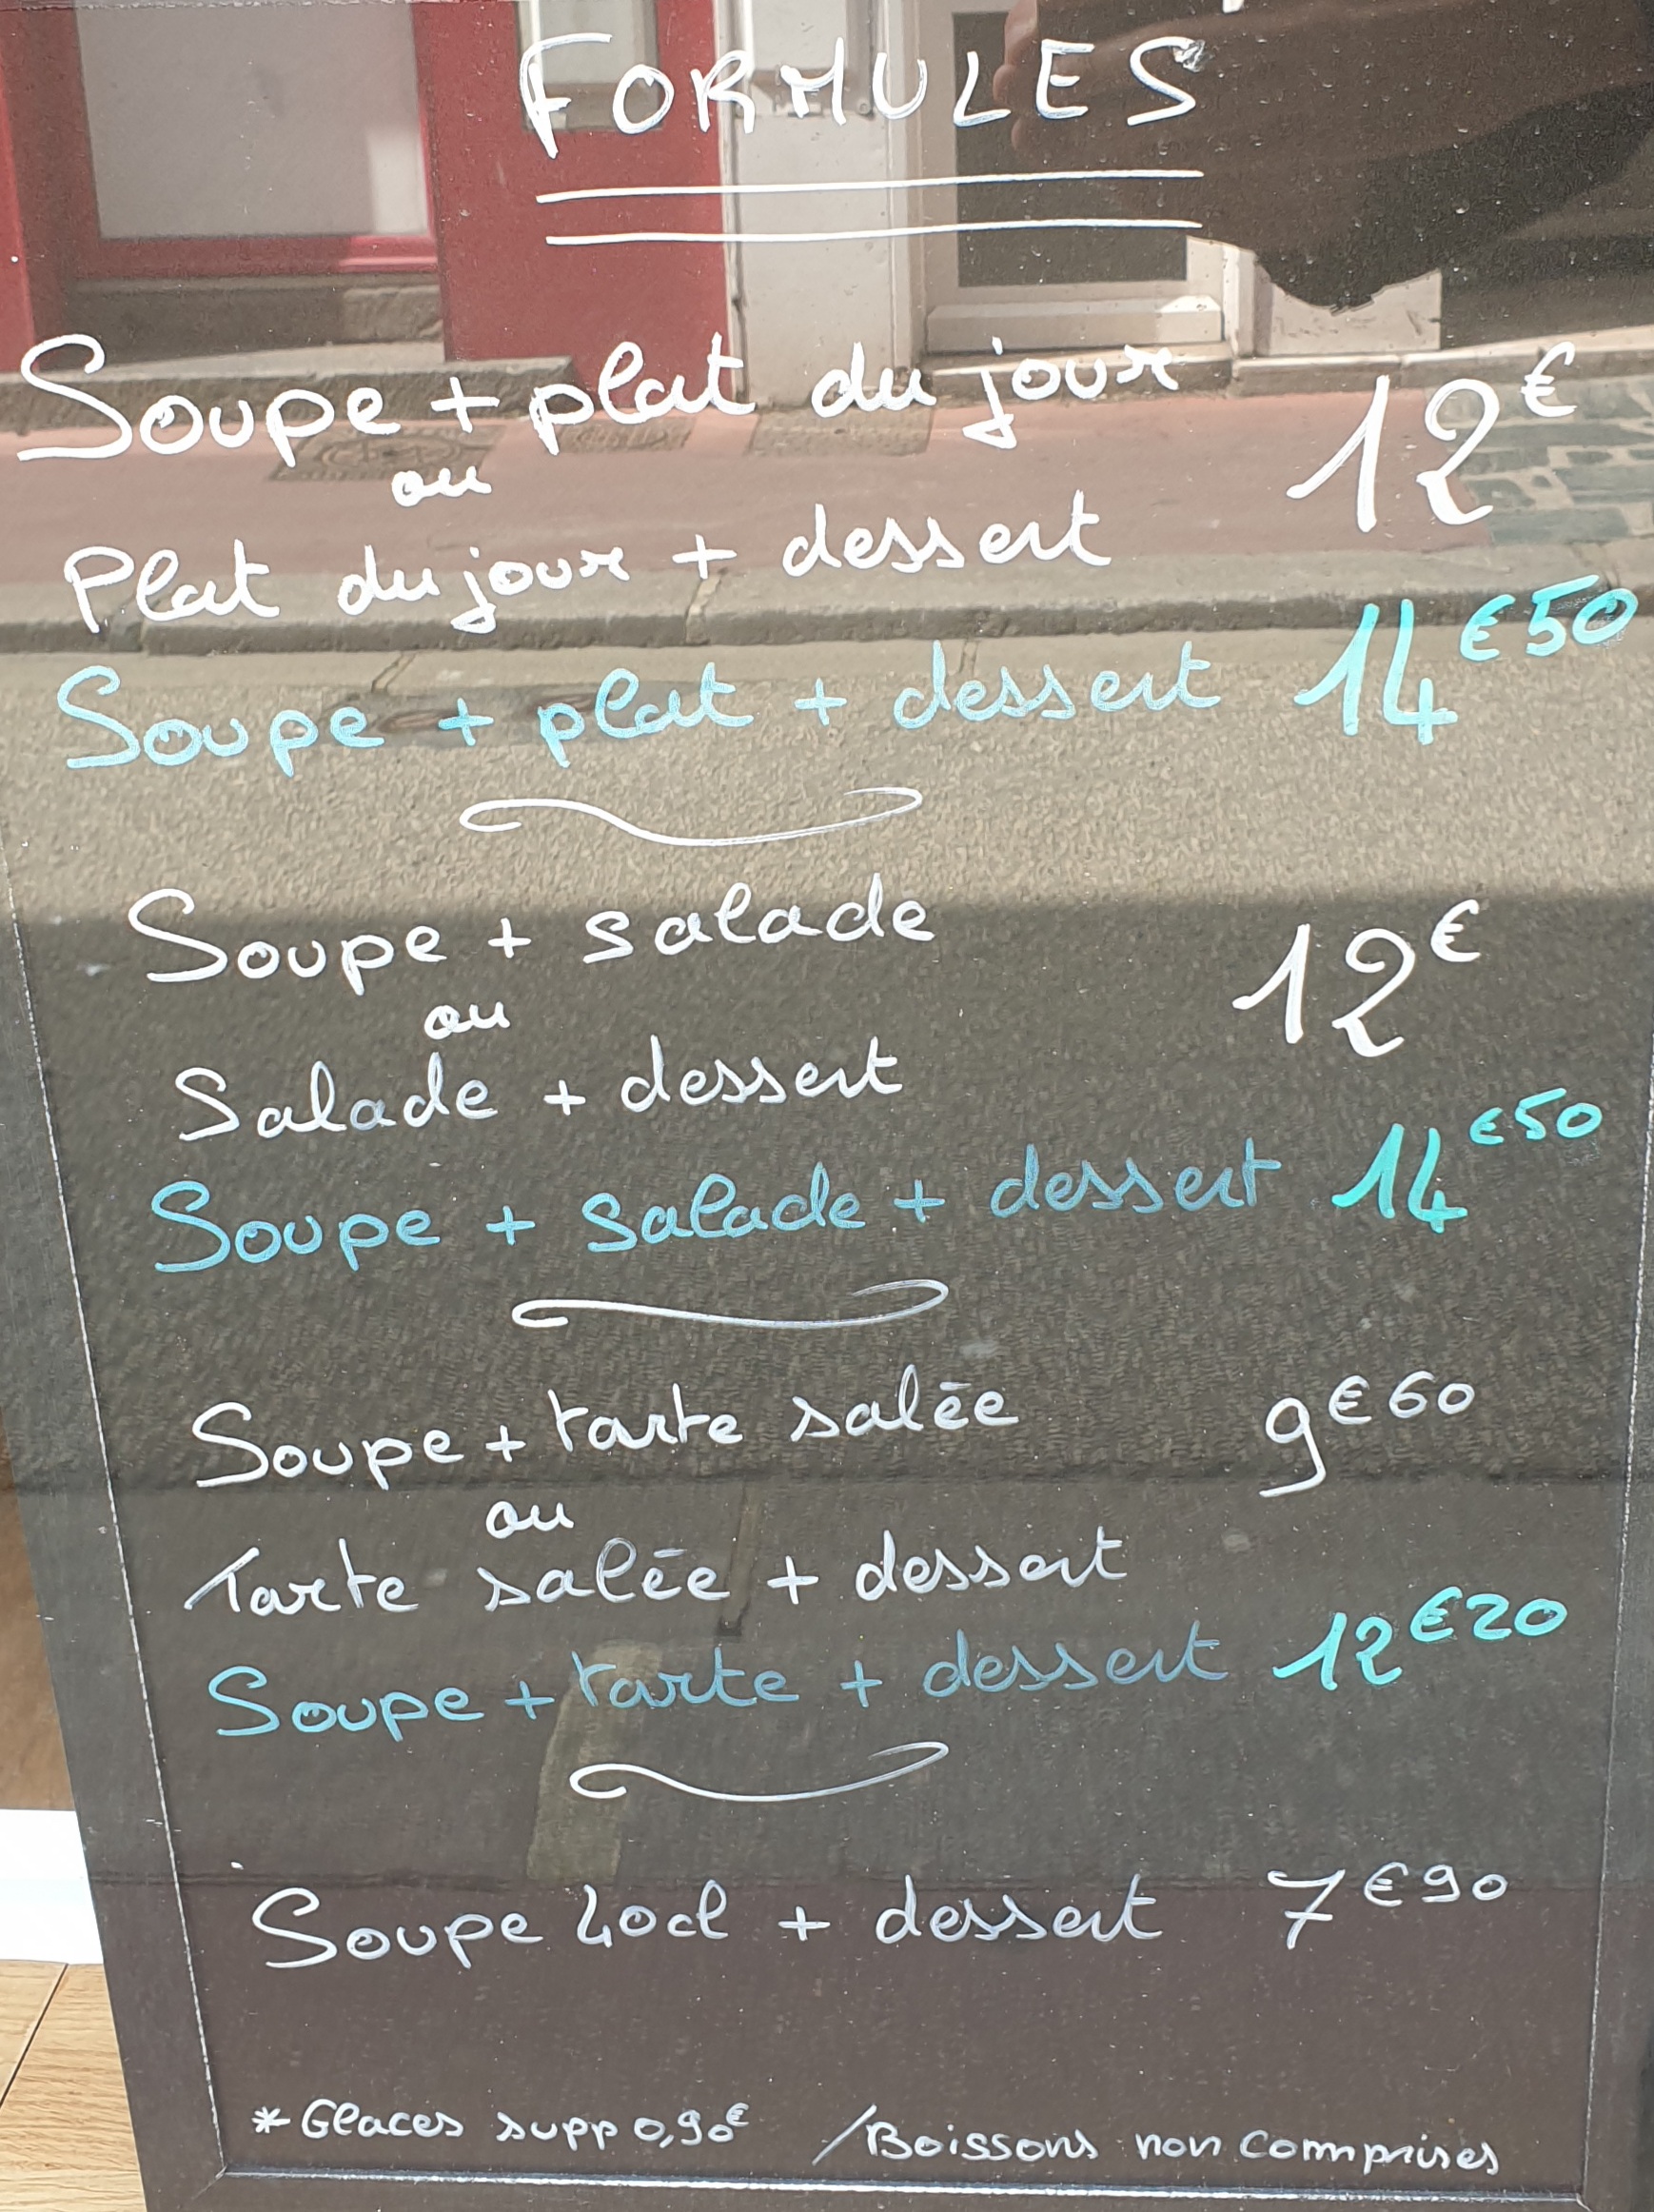 FORMULES
Soupe + plat du jour 12€
ou
Plat du jour + dessert
Soupe + plat + dessert 14€50
Soupe + salade 12€
ou
Salade + dessert
Soupe + salade + dessert 14€50
Soupe + tarte salée 9€60
ou
Tarte salée + dessert
Soupe + tarte + dessert 12€20
Soupe 40cl + dessert 7€90
* Glaces supp 0,90€ / Boissons non comprises